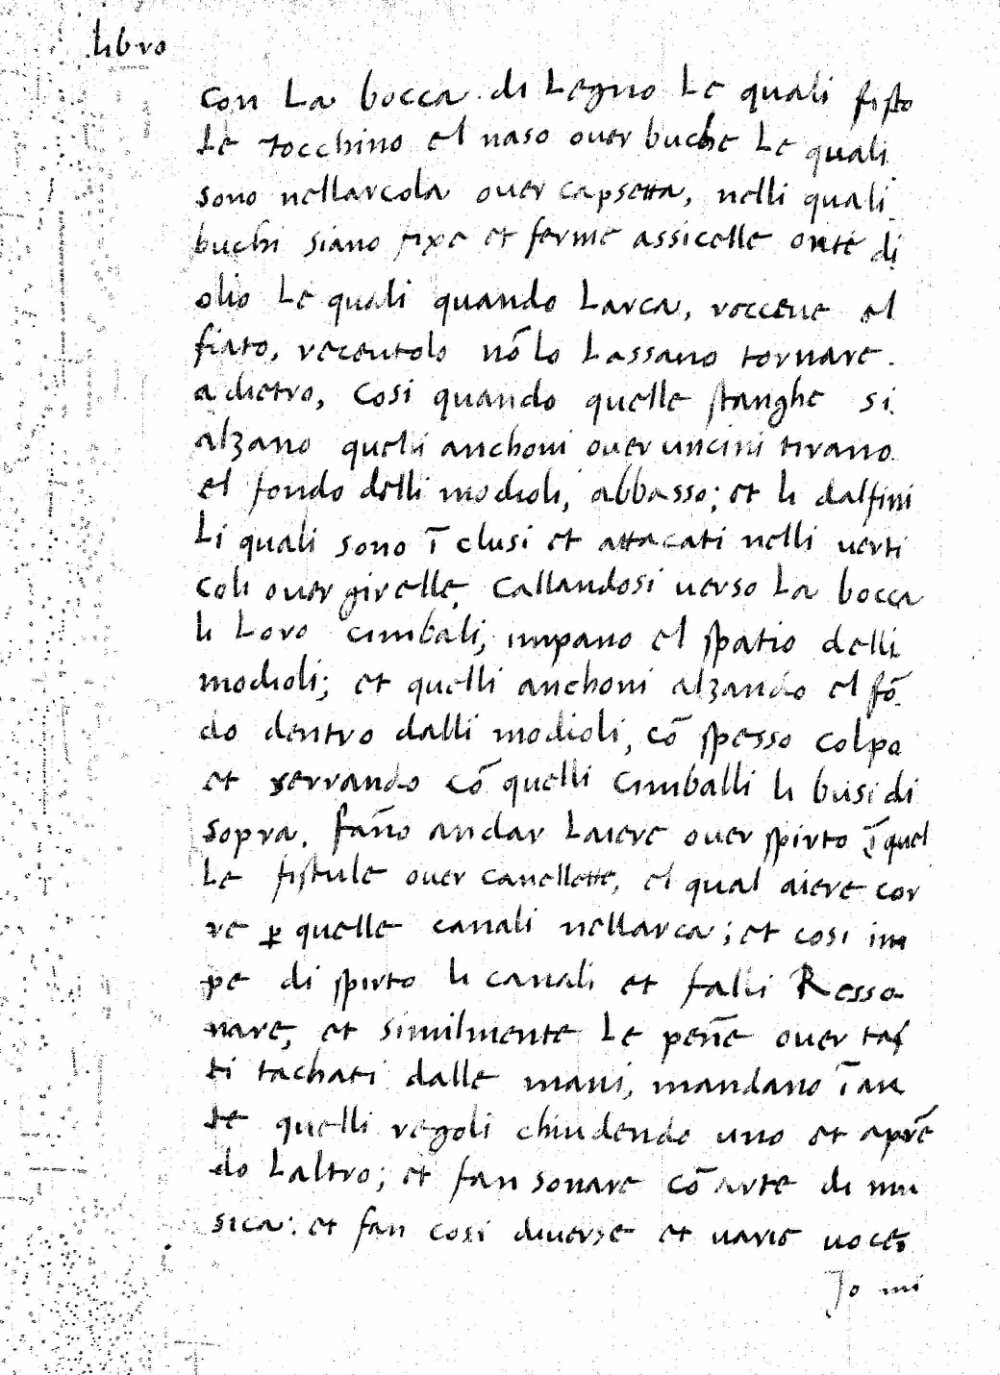 libro
con La bocca di Legno Le quali fisto
Le tocchino el naso ouer buche Le quali
sono nellarcola ouer capsetta, nelli quali
buchi siano fixe et ferme assicelle onte di
olio Le quali quando Larca, roccene el
fiato, receutolo nō lo Lassano tornare.
a dietro, Cosi quando quelle stanghe si
alzano quelli anchoni ouer uncini tirano
el fondo delli modioli, abbasso; et li dalfini
Li quali sono ī clusi et attacati nelli verti
coli ouer girelle, callandosi uerso La bocca
li Loro cimbali, impano el spatio delli
modioli; et quelli anchoni alzando el fō
do dentro dalli modioli, cō spesso colpo
et serrando cō quelli cimballi li busi di
sopra, fāno andar Laiere ouer spirto ī quel
Le fistule ouer canellette, el qual aiere cor
re ꝑ quelle canali nellarca; et cosi im
pe di spirto li canali et falli Resso
nare, et similmente Le peñe ouer tas
ti tachati dalle mani, mandano ī an
te quelli regoli chiudendo uno et aprē
do Laltro; et fan sonare cō arte di mu
sica: et fan cosi diuerse et uarie uoce:
Jo mi